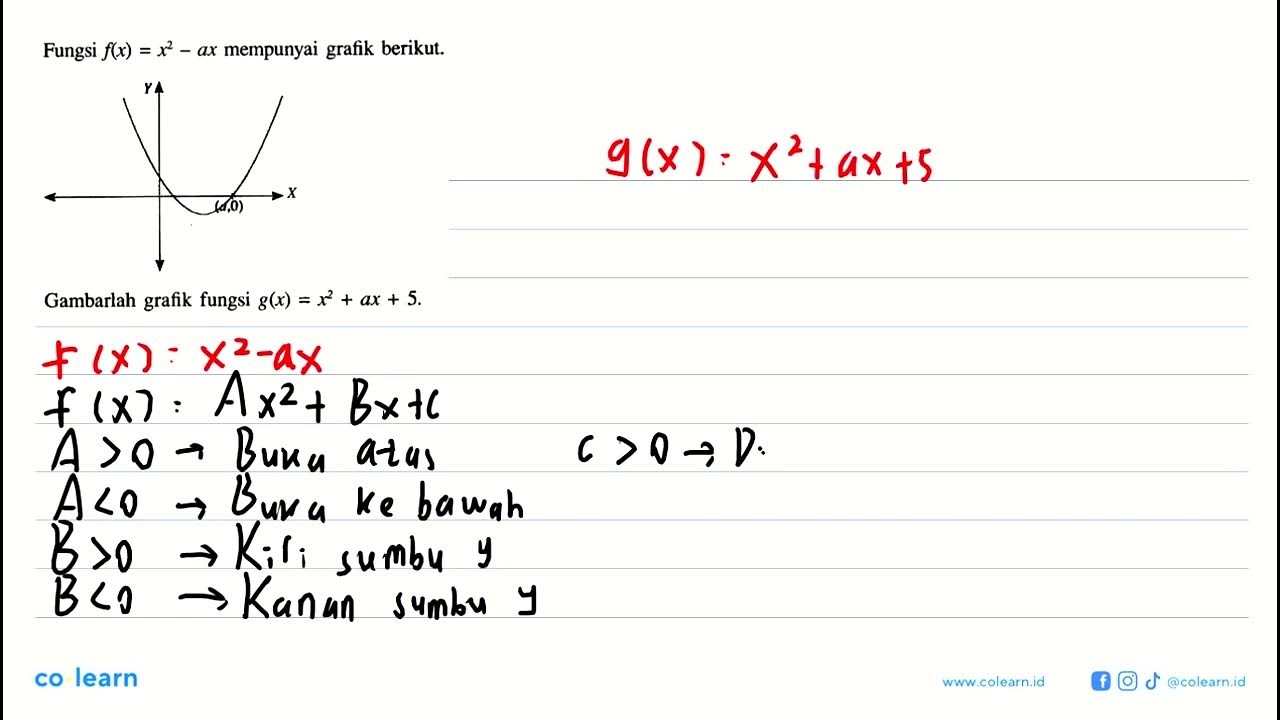 Fungsi f(x) = x² – ax mempunyai grafik berikut.
Y
X
(a,0)
g(x) = x² + ax + 5
Gambarlah grafik fungsi g(x) = x² + ax + 5.
f(x) = x² - ax
f(x) = Ax² + Bx + C
A > 0 → Buka atas
C > 0 → D.
A < 0 → Buka ke bawah
B > 0 → Kiri sumbu y
B < 0 → Kanan sumbu y
co learn
www.colearn.id
@colearn.id